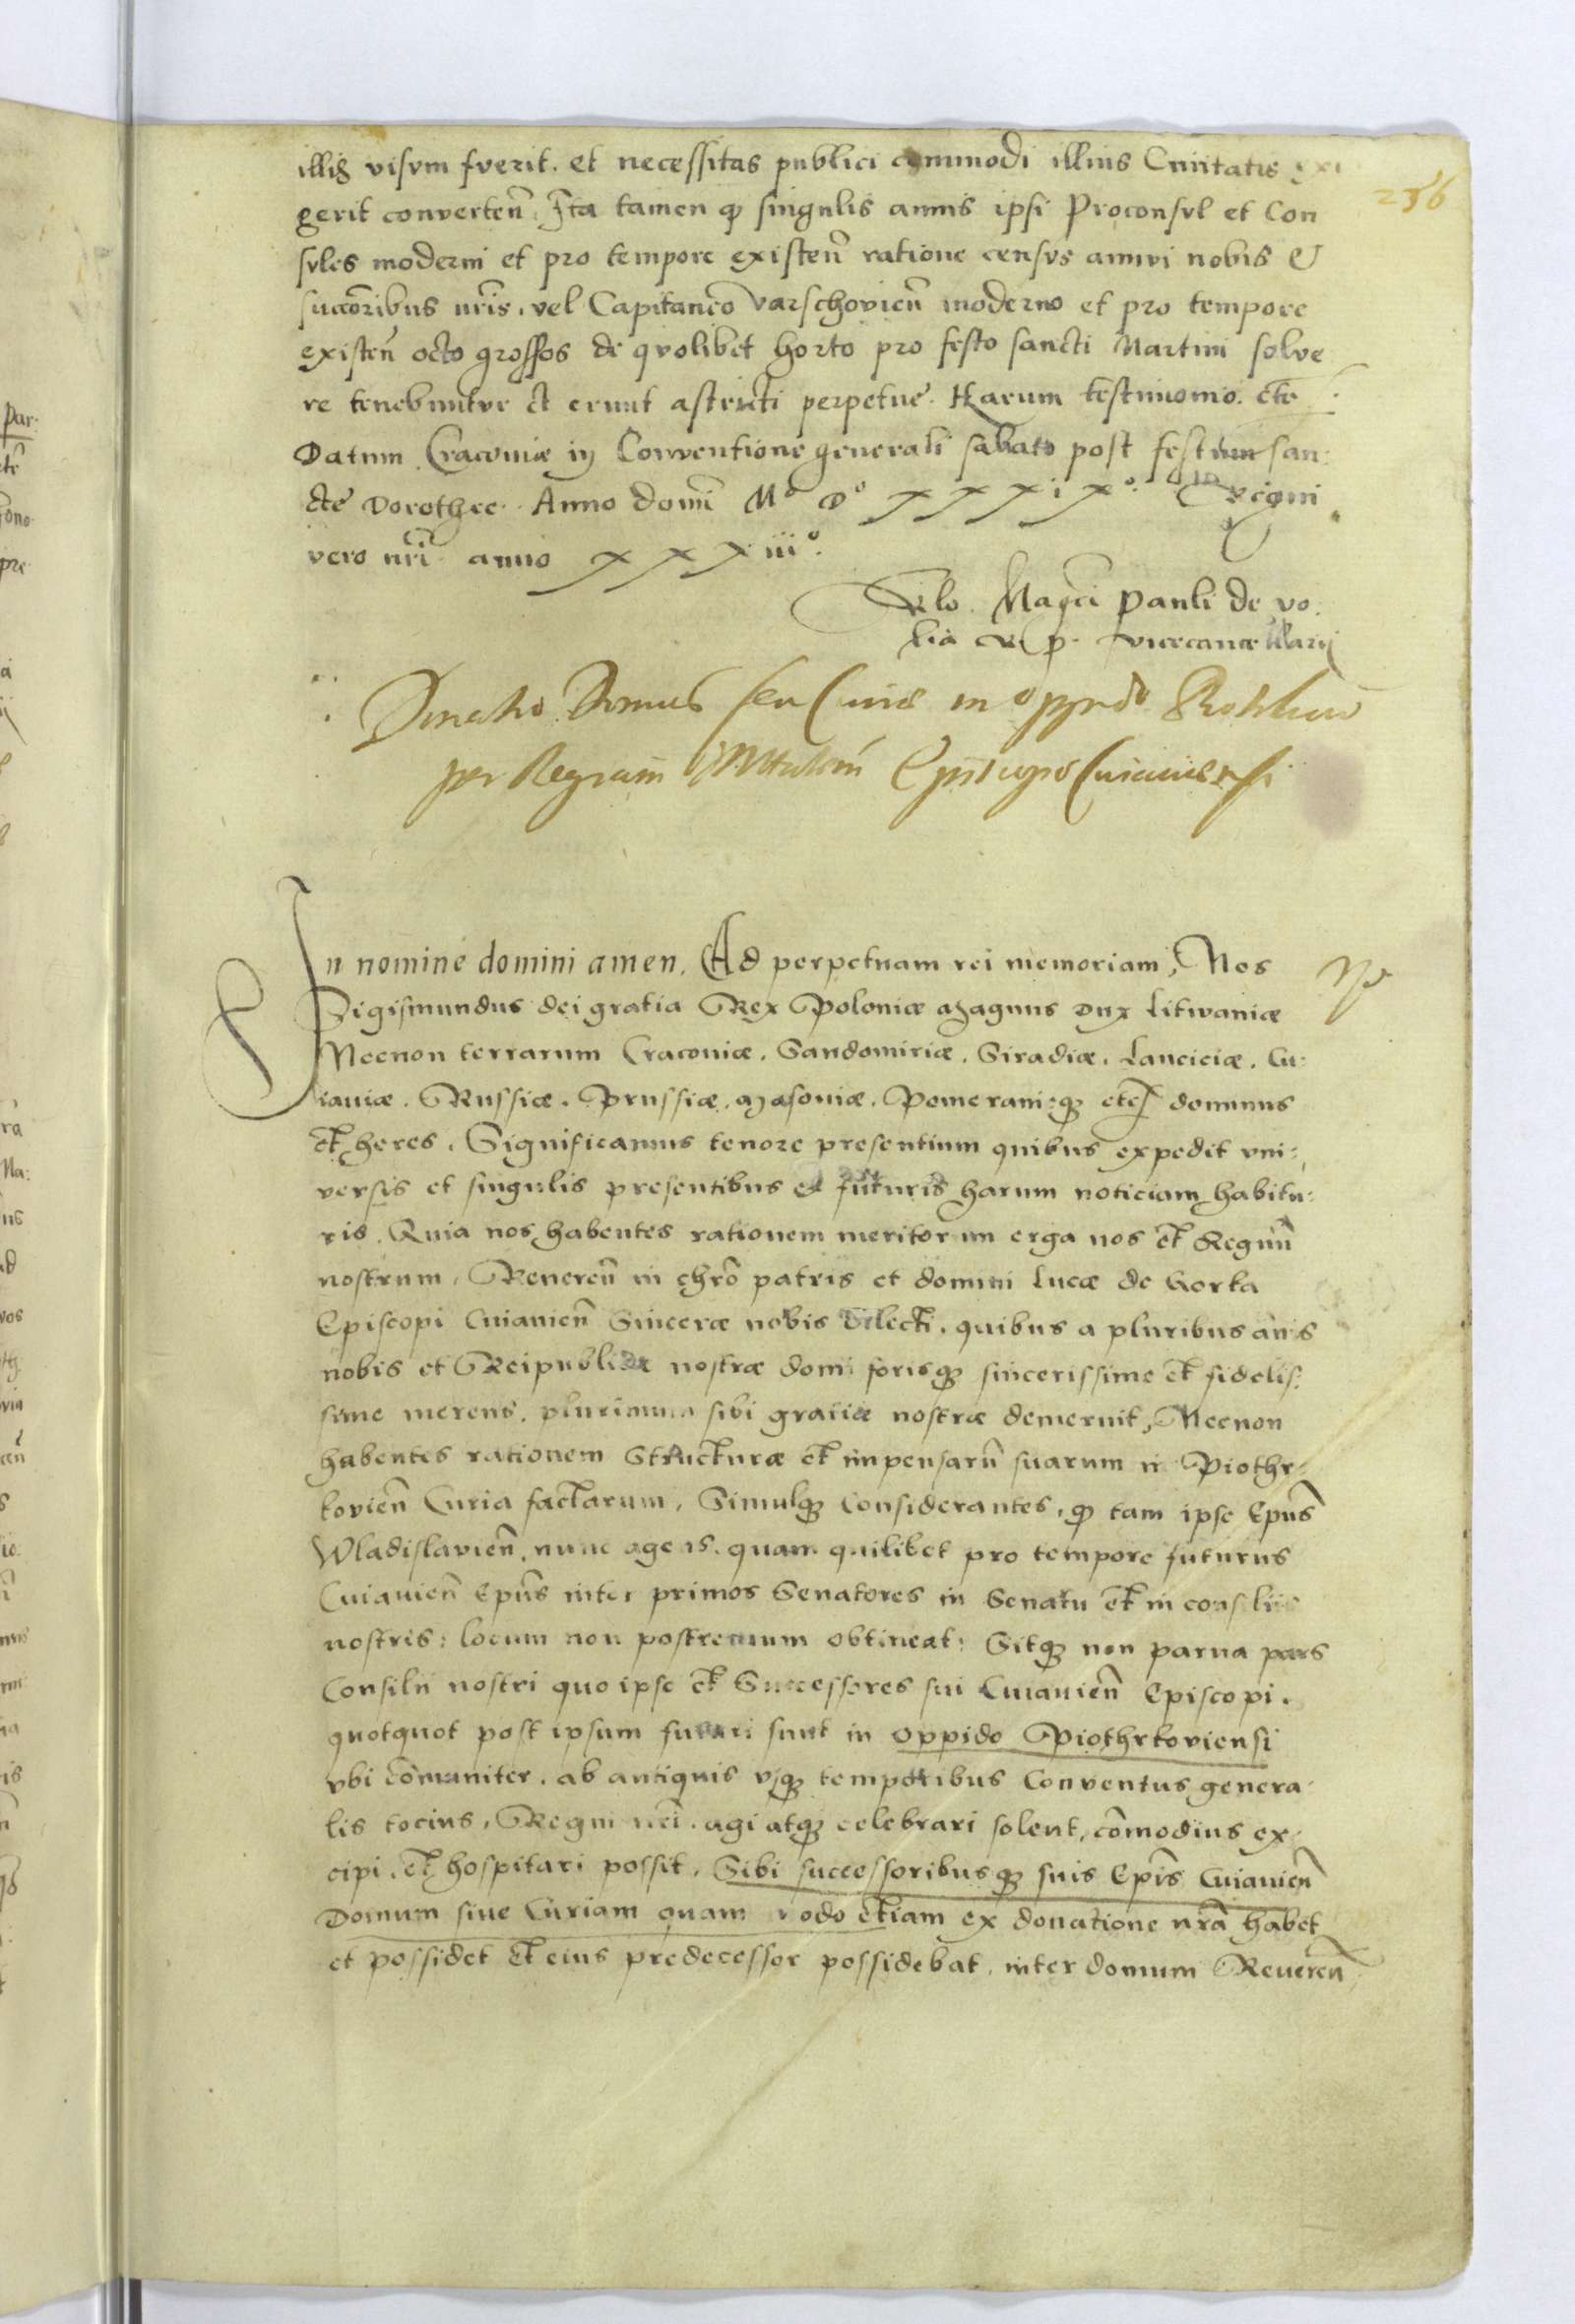 illis visvm fverit. et necessitas publici commodi illius Ciuitatis exi
256
gerit converteñ. Ita tamen q̃ singulis annis ipsi Proconsvl et Con
svles moderni et pro tempore existeñ ratione censvs annvi nobis &
succoribus nr̃is. vel Capitaneo Varschovieñ moderno et pro tempore
existeñ octo grossos de qvolibet horto pro festo sancti Martini solve
re tenebuntvr et erunt astricti perpetue. Harum testimonio. etc
Datum Cracoviæ in Conventione generali sabato post festum san:
cte Dorothee. Anno domĩ Mº Dº xxxixº. Regni
vero nr̃i anno xxxiiiº.
Rlo. Magci Pauli de vo:
lia R p. vicecancellarii
Donatio Domus seu Curiæ in oppido
per Regiam Episcopo Cuiauiensi
In nomine domini amen. Ad perpetuam rei memoriam, Nos
Sigismundus dei gratia Rex Poloniæ Magnus Dux Litwaniæ
Necnon terrarum Cracoviæ. Sandomiriæ. Siradiæ. Lanciciæ. Cu:
iauiæ. Russiæ. Prussiæ. Masoviæ. Pomeraniæq̃ etc̃ dominus
et heres. Significamus tenore presentium quibus expedit vni:
versis et singulis presentibus et futuris harum noticiam habitu:
ris. Quia nos habentes rationem meritorum erga nos et Regnũ
nostrum. Revereñ in chr̃o patris et domini Lucæ de Gorka
Episcopi Cuiavieñ Sinceræ nobis dilecti. quibus a pluribus añis
nobis et Reipublicæ nostræ domi forisq̃ sincerissime et fidelis:
sime merens. plurimum sibi gratiæ nostræ demeruit, Necnon
habentes rationem Structuræ et impensarũ suarum in Piothr:
kovieñ Curia factarum. Simulq̃ Considerantes. q̃ tam ipse Epũs
Wladislavieñ. nunc agens. quam quilibet pro tempore futurus
Cuiavieñ Epũs inter primos Senatores in Senatu et in consiliis
nostris: locum non postremum obtineat: Sitq̃ non parva pars
Consilii nostri quo ipse et Successores sui Cuiavieñ Episcopi.
quotquot post ipsum futuri sunt in oppido Piothrkoviensi
vbi cõmuniter. ab antiquis vsq̃ temporibus Conventus genera:
lis tocius. Regni nr̃i. agi atq̃ celebrari solent, cõmodius ex:
cipi. et hospitari possit. Sibi successoribusq̃ suis Epĩs Cuiavieñ
Domum siue Curiam quam modo etiam ex donatione nr̃a habet
et possidet et eius predecessor possidebat. inter domum Revereñ